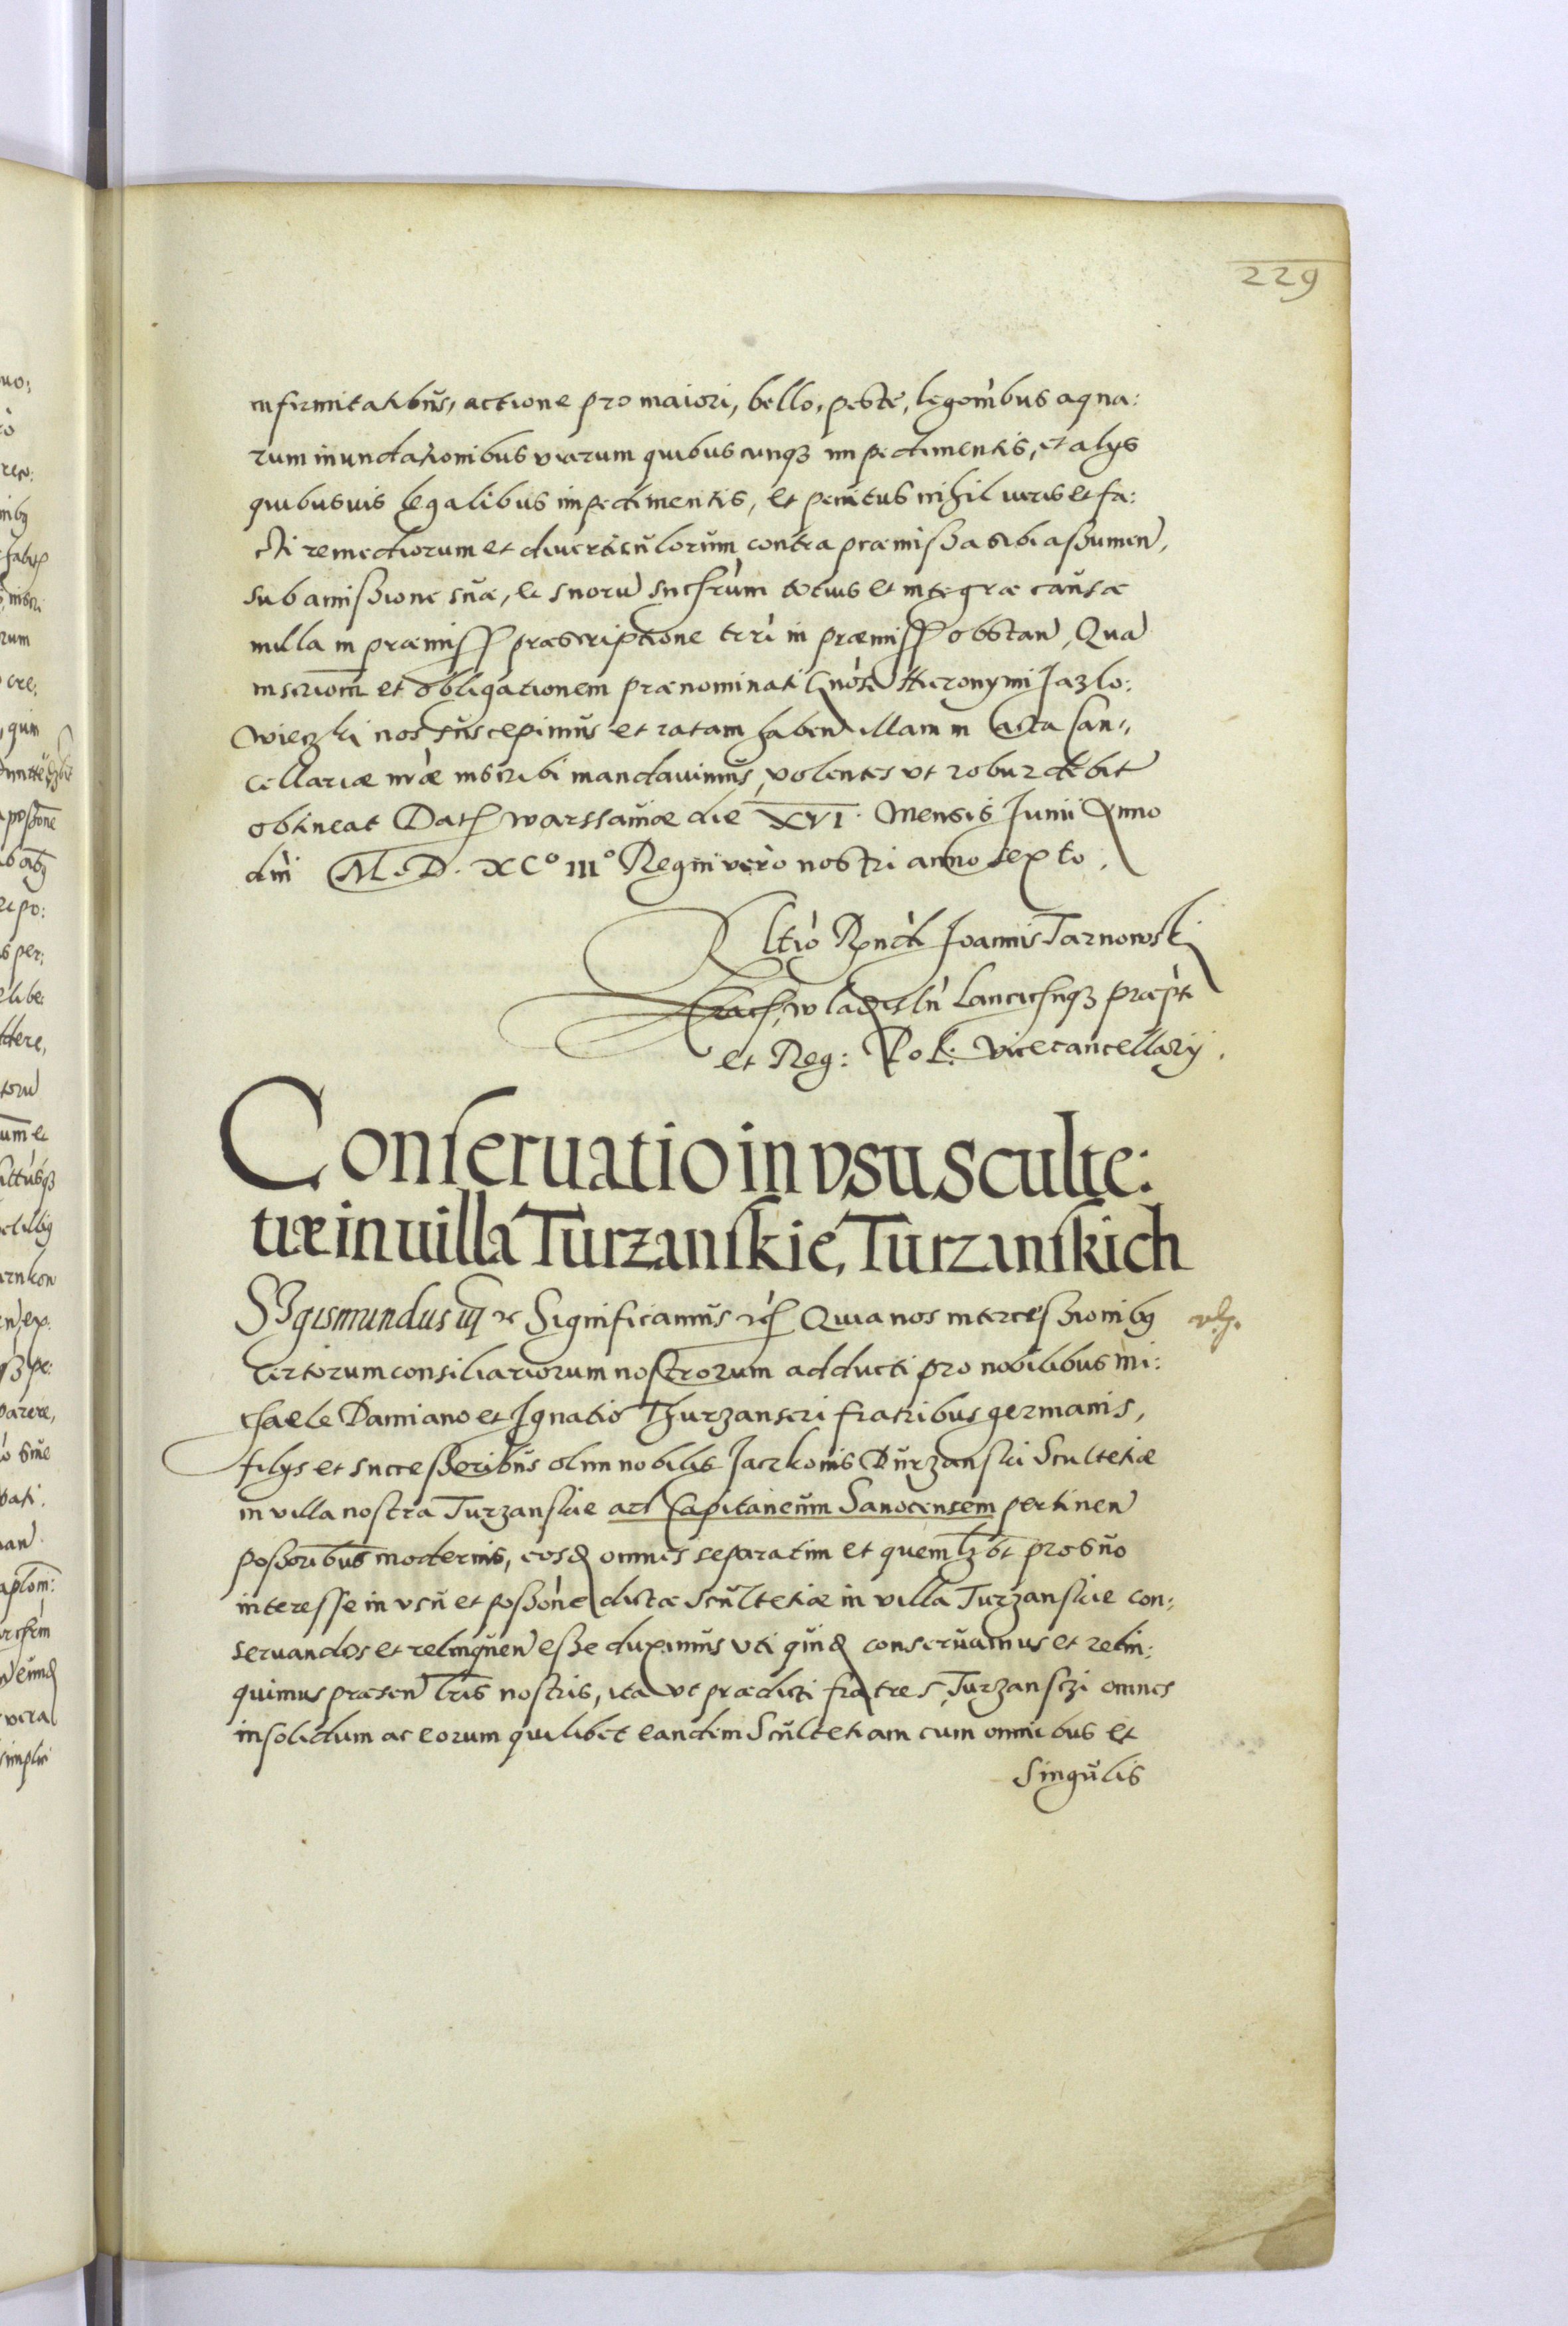 229
infirmitatibus, actione pro maiori, bello, peste, legoīibus aqua:
rum inundationibus viarum quibuscunqȝ impedimentis, et alys
quibusuis legalibus impedimentis, et penitus nihil iuris et fa:
cti remediorum et diuerticulorum contra præmissa sibi assumen,
sub amissione suæ, et suorū succrum totius et integræ causæ
nulla in præmiss præscriptione trī in præmiss obstan, Quā
inscriōm et obligationem prænominati Gnōsi Hieronymi Jazlo:
wieczki nos suscepimus et ratam haben illam in acta Can:
cellariæ nræ inscribi mandauimus, volentes vt robur debit
obtineat Dat Warssauiæ die XVI. Mensis Junii Anno
dni M. D. XC° III° Regni vero nostri anno sexto.
Rltio Rndi Joannis Tarnowski
Crac, wladislū Lancicnqȝ præpti
et Reg: Pol: Vicecancellary.
Conseruatio in vsu Sculte:
tiæ in uilla Turzanskie, Turzanskich
Sigismundus iij ꝛc Significamus ꝛc Quia nos intercessionibꝰ
certorum consiliariorum nostrorum adducti pro nobilibus mi:
chaele Damiano et Ignatio Thurzanscri fratribus germanis,
filys et successoribus olim nobilis Jaczkonis Durzanski Scultetiæ
in villa nostra Turzanskie ad Capitaneum Sanocensem pertinen
possoribus modernis, eosd omnes separatim et quemlȝbt pro suo
interesse in vsu et possōne dictæ Scultetiæ in villa Turzanskie con:
seruandos et relinquen esse duximus vti quid conseruamus et relin:
quimus præsen lris nostris, ita vt prædicti fratres Turzansczi omnes
insolidum ac eorum quilibet eandem Scultetiam cum omnibus et
Singulis